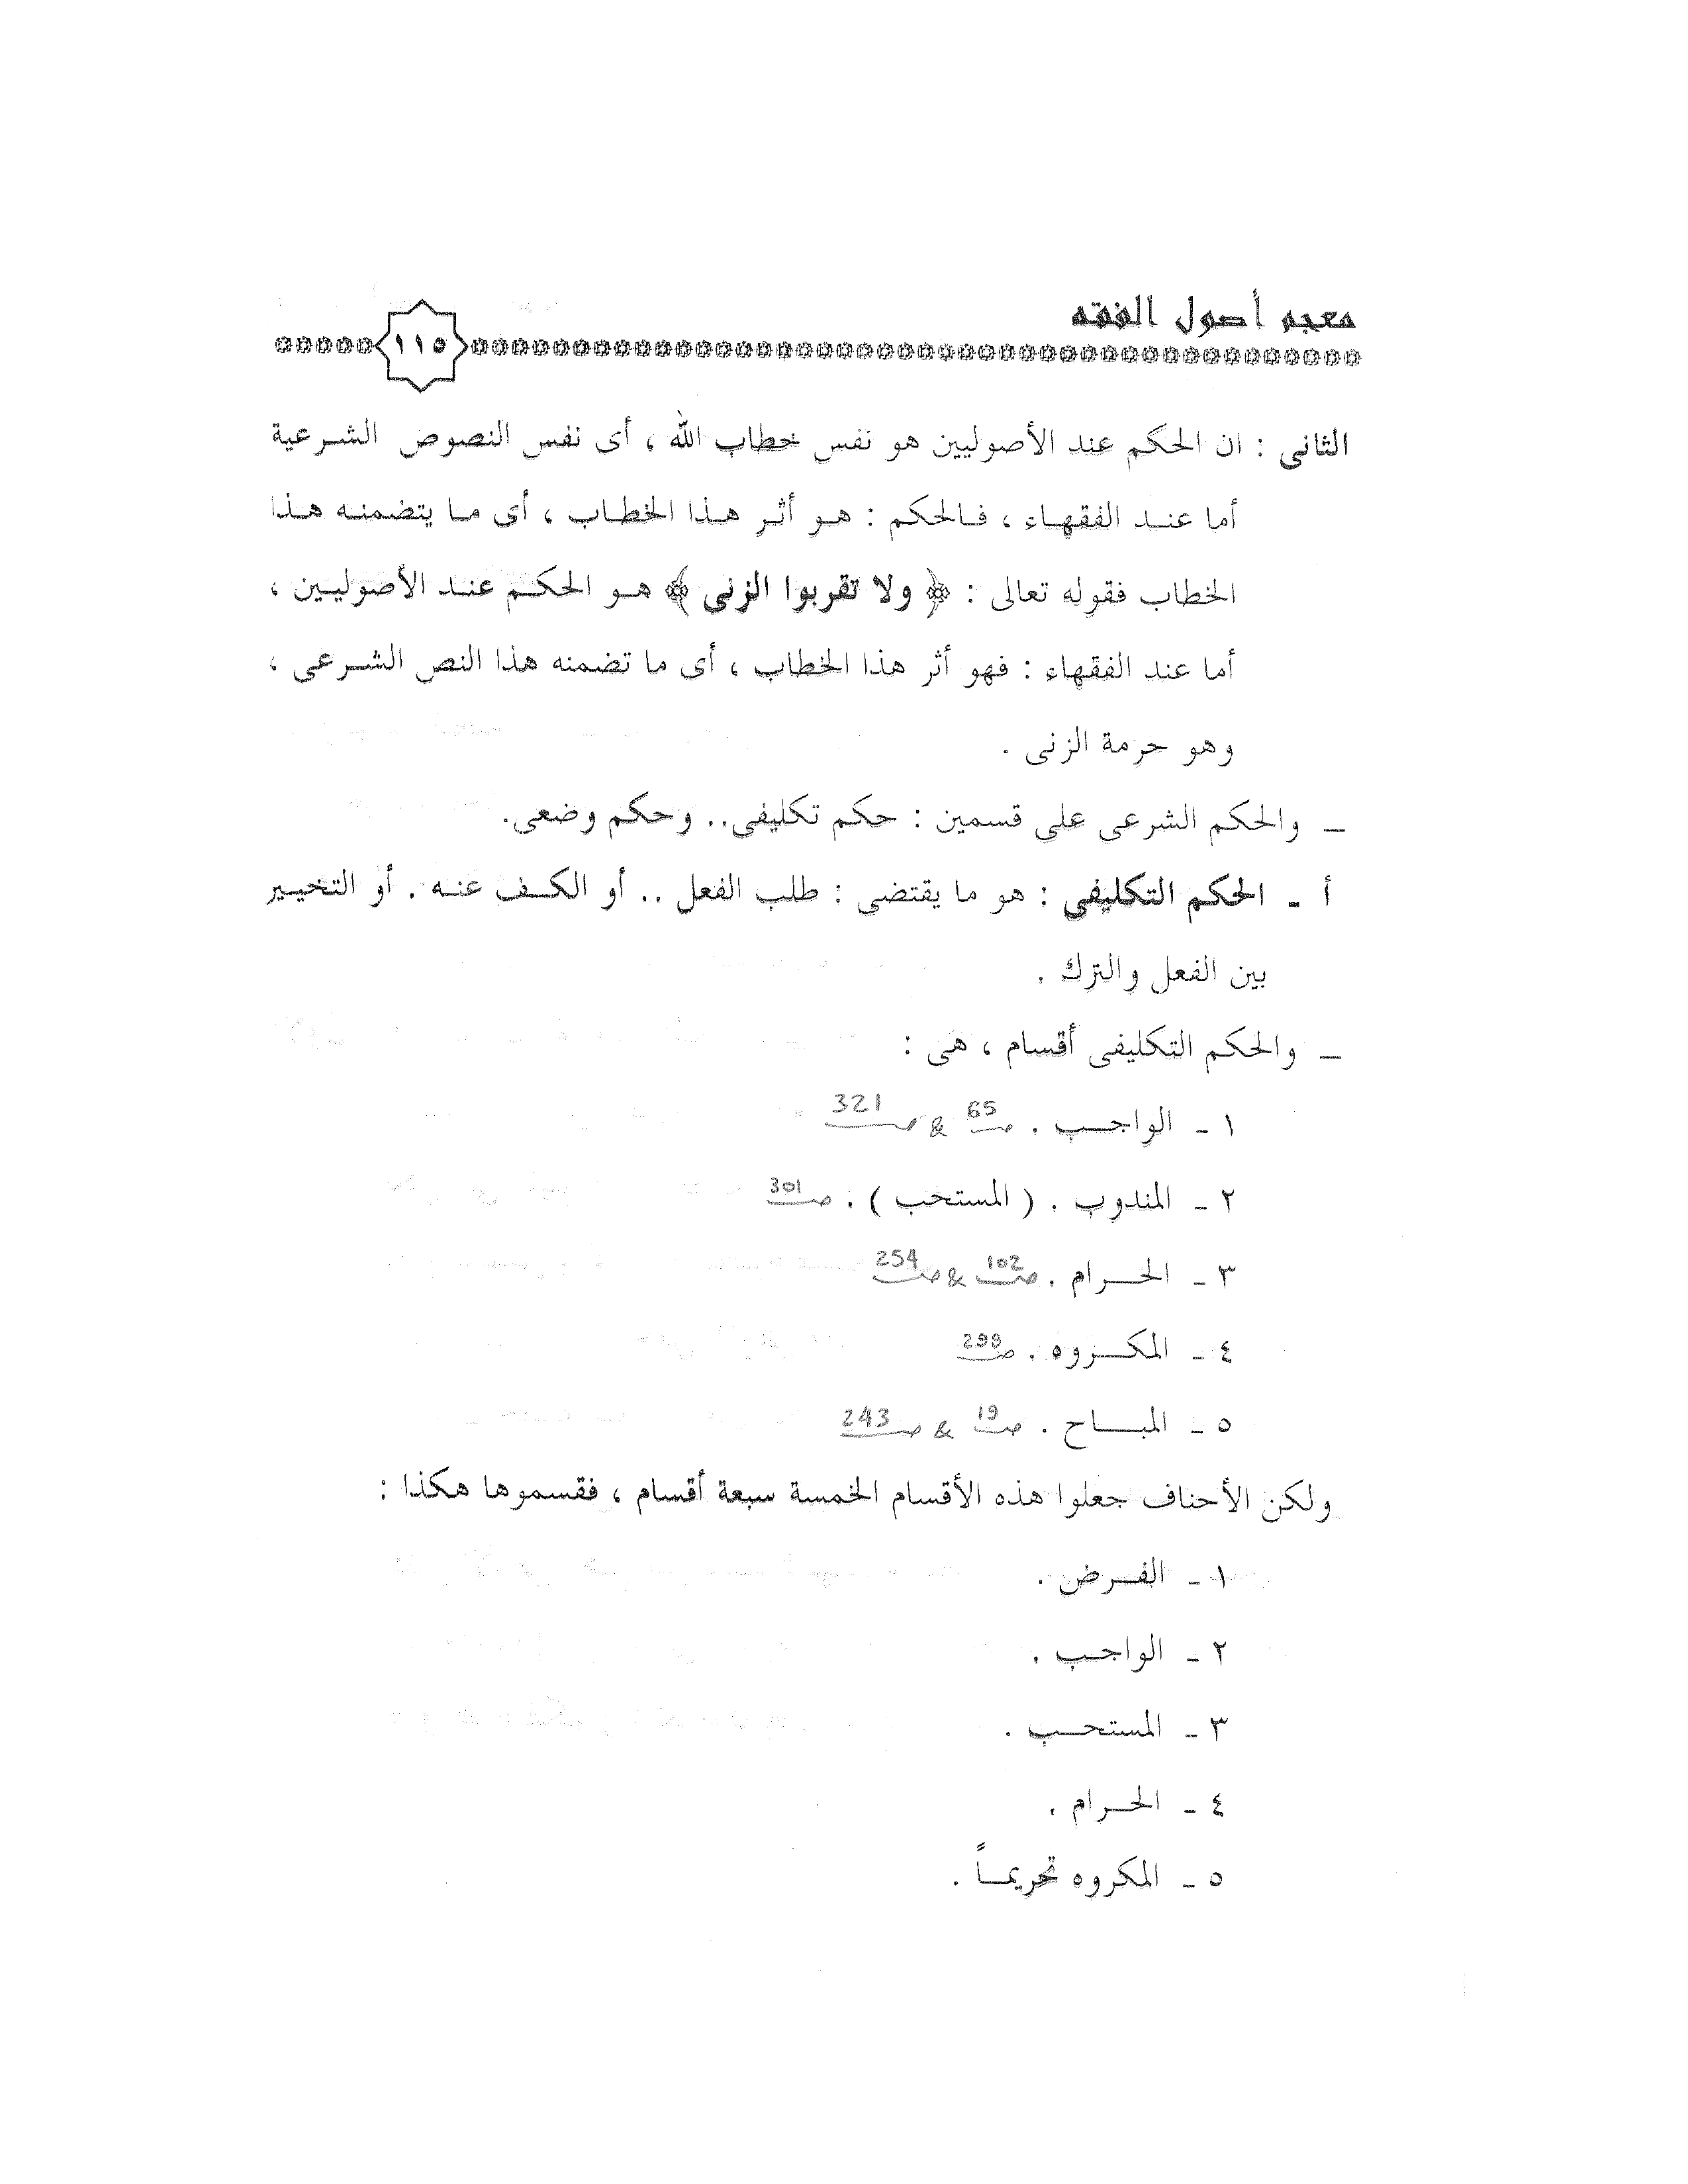 معجم أصول الفقه
١١٥
الثانى : ان الحكم عند الأصوليين هو نفس خطاب الله ، أى نفس النصوص الشرعية
أما عند الفقهاء ، فالحكم : هو أثر هذا الخطاب ، أى ما يتضمنه هذا
الخطاب فقوله تعالى : ﴿ ولا تقربوا الزنى ﴾ هو الحكم عند الأصوليين ،
أما عند الفقهاء : فهو أثر هذا الخطاب ، أى ما تضمنه هذا النص الشرعى ،
وهو حرمة الزنى .
ـ والحكم الشرعى على قسمين : حكم تكليفى.. وحكم وضعى.
أ ـ الحكم التكليفى : هو ما يقتضى : طلب الفعل .. أو الكف عنه . أو التخيير
بين الفعل والترك .
ـ والحكم التكليفى أقسام ، هى :
١ ـ الواجب . صـ 65 & صـ 321
٢ ـ المندوب . ( المستحب ) . صـ 301
٣ ـ الحرام . صـ 102 & صـ 254
٤ ـ المكروه . صـ 299
٥ ـ المباح . صـ 19 & صـ 243
ولكن الأحناف جعلوا هذه الأقسام الخمسة سبعة أقسام ، فقسموها هكذا :
١ ـ الفرض .
٢ ـ الواجب .
٣ ـ المستحب .
٤ ـ الحرام .
٥ ـ المكروه تحريماً .